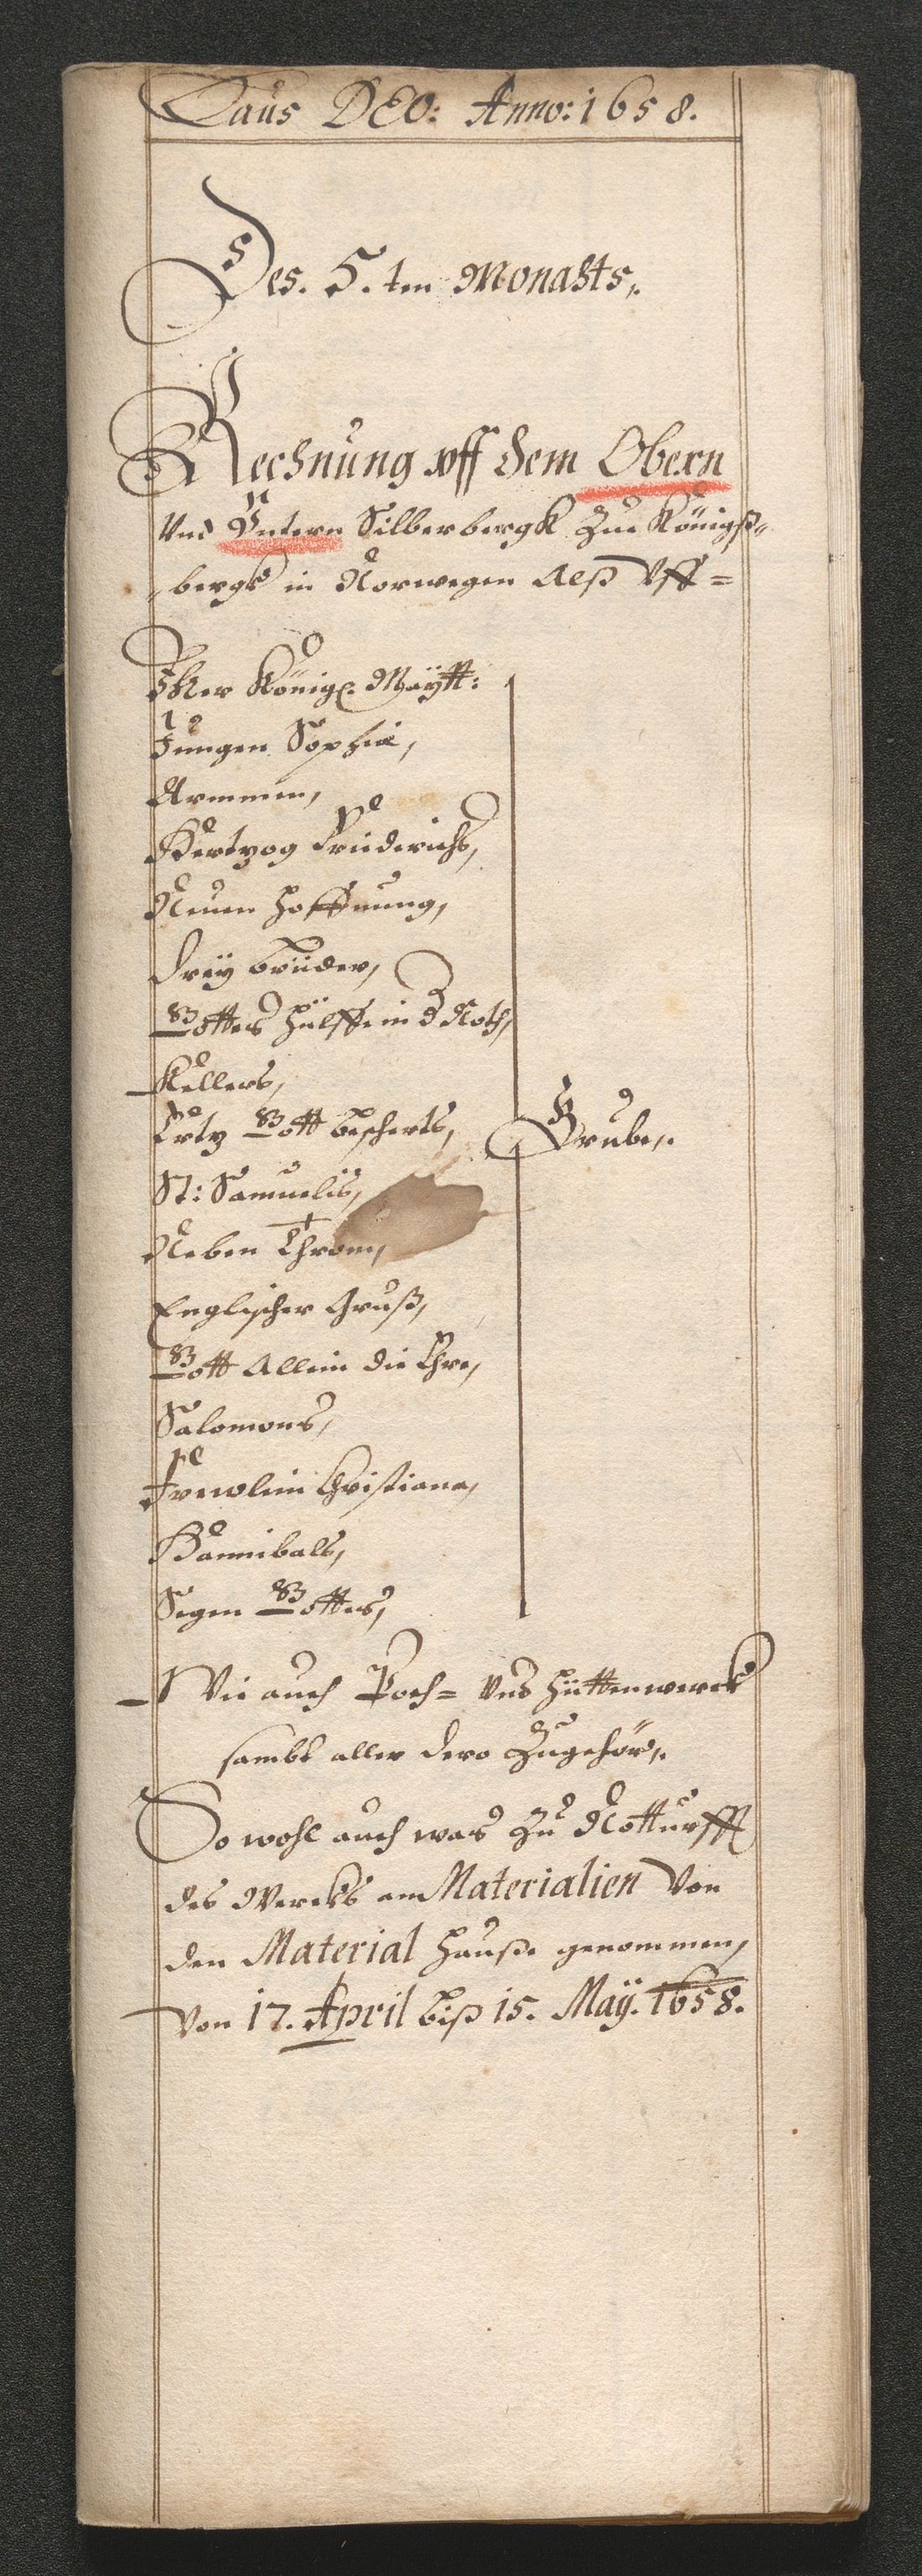 Laus DEO: Anno: 1658.
Des. 5. ten Monahts,.
Rechnung vff dem Obern
Vnd Vntern Silberbergk Zue Königß-
bergk in Norwegen Alß Vff =
Ihr Königl. Maÿtt:
Jungen Sophiæ,
Armmen,
Hertzog Friederichs,
Neuen Hoffnung,
Dreÿ brüder,
Gottes Hülffe in d Noth,
Kellers,
Ertz Gott bescherts,
Grube,.
St: Samuelis,
Neben Thronn,
Englischer Gruß,
Gott Allein die Ehre,
Salomons,
Frewlein Christiana,
Hannibals,
Segen Gottes,
Wie auch Poch= Vnd Hüttenwerck
sambt aller dero Zugehör,.
So wohl auch was Zu Notturfft
des Wercks an Materialien Von
den Material Hauße genommen,
Von 17. April biß 15. Maÿ. 1658.